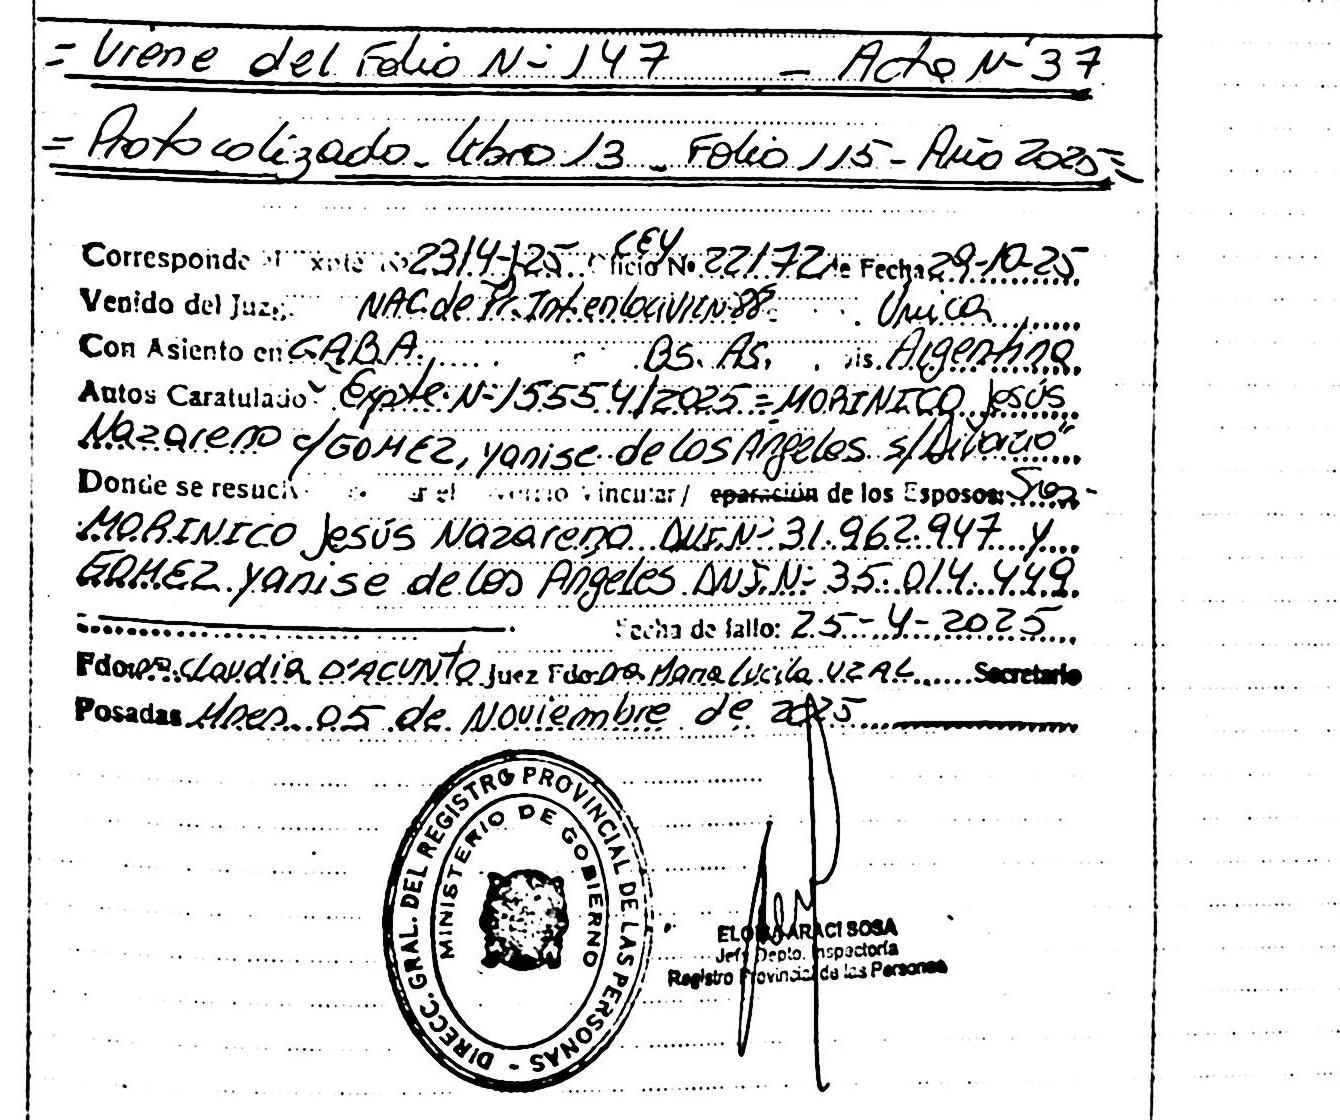 = Viene del Folio N- 147 - Acta N- 37
= Protocolizado - Libro 13 - Folio 115 - Año 2025 =
Corresponde al Expte No 2314-J-25 Oficio LEY Nº 22172 de Fecha 29-10-25
Venido del Juzg. NAC. de Pr. Inst. en lo Civil N- 88 Unica
Con Asiento en C.A.B.A. Bs. As. Argentina
Autos Caratulado "Expte. N- 15554/2025 = MORINICO Jesús
Nazareno c/ GOMEZ, yanise de los Ángeles s/ Divorcio"
Donde se vincular / eparación de los Esposos: Sres-
MORINICO Jesús Nazareno DNI. N- 31.962.947 y
GOMEZ yanise de los Ángeles DNI. N- 35.014.449
Fecha de fallo: 25-4-2025
Fdo. Claudia D'ACUNTO Juez Fdo. Dra Maria Lucila UZAL Secretario
Posadas Mnes. 05 de Noviembre de 2025
DIRECC. GRAL. DEL REGISTRO PROVINCIAL DE LAS PERSONAS -
MINISTERIO DE GOBIERNO
ARACI SOSA
Jefe Depto. Inspectoría
Registro Provincial de las Personas